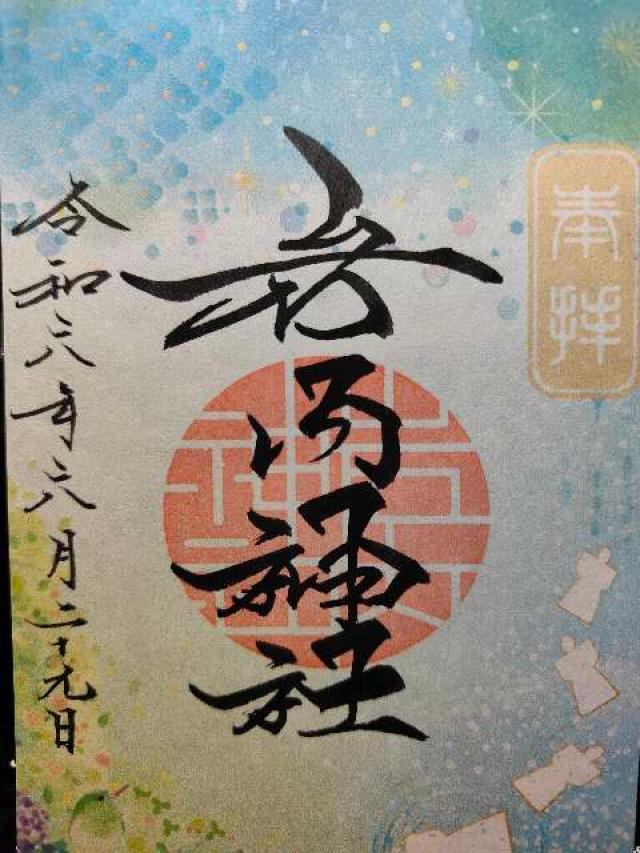 奉拝
神社
令和六年六月二十九日